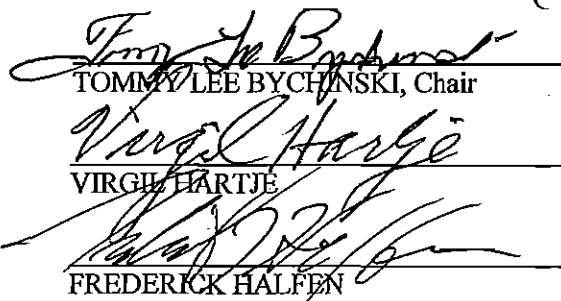 Tommy Lee Bychinski
TOMMY LEE BYCHINSKI, Chair
Virgil Hartje
VIRGIL HARTJE
FREDERICK HALFEN